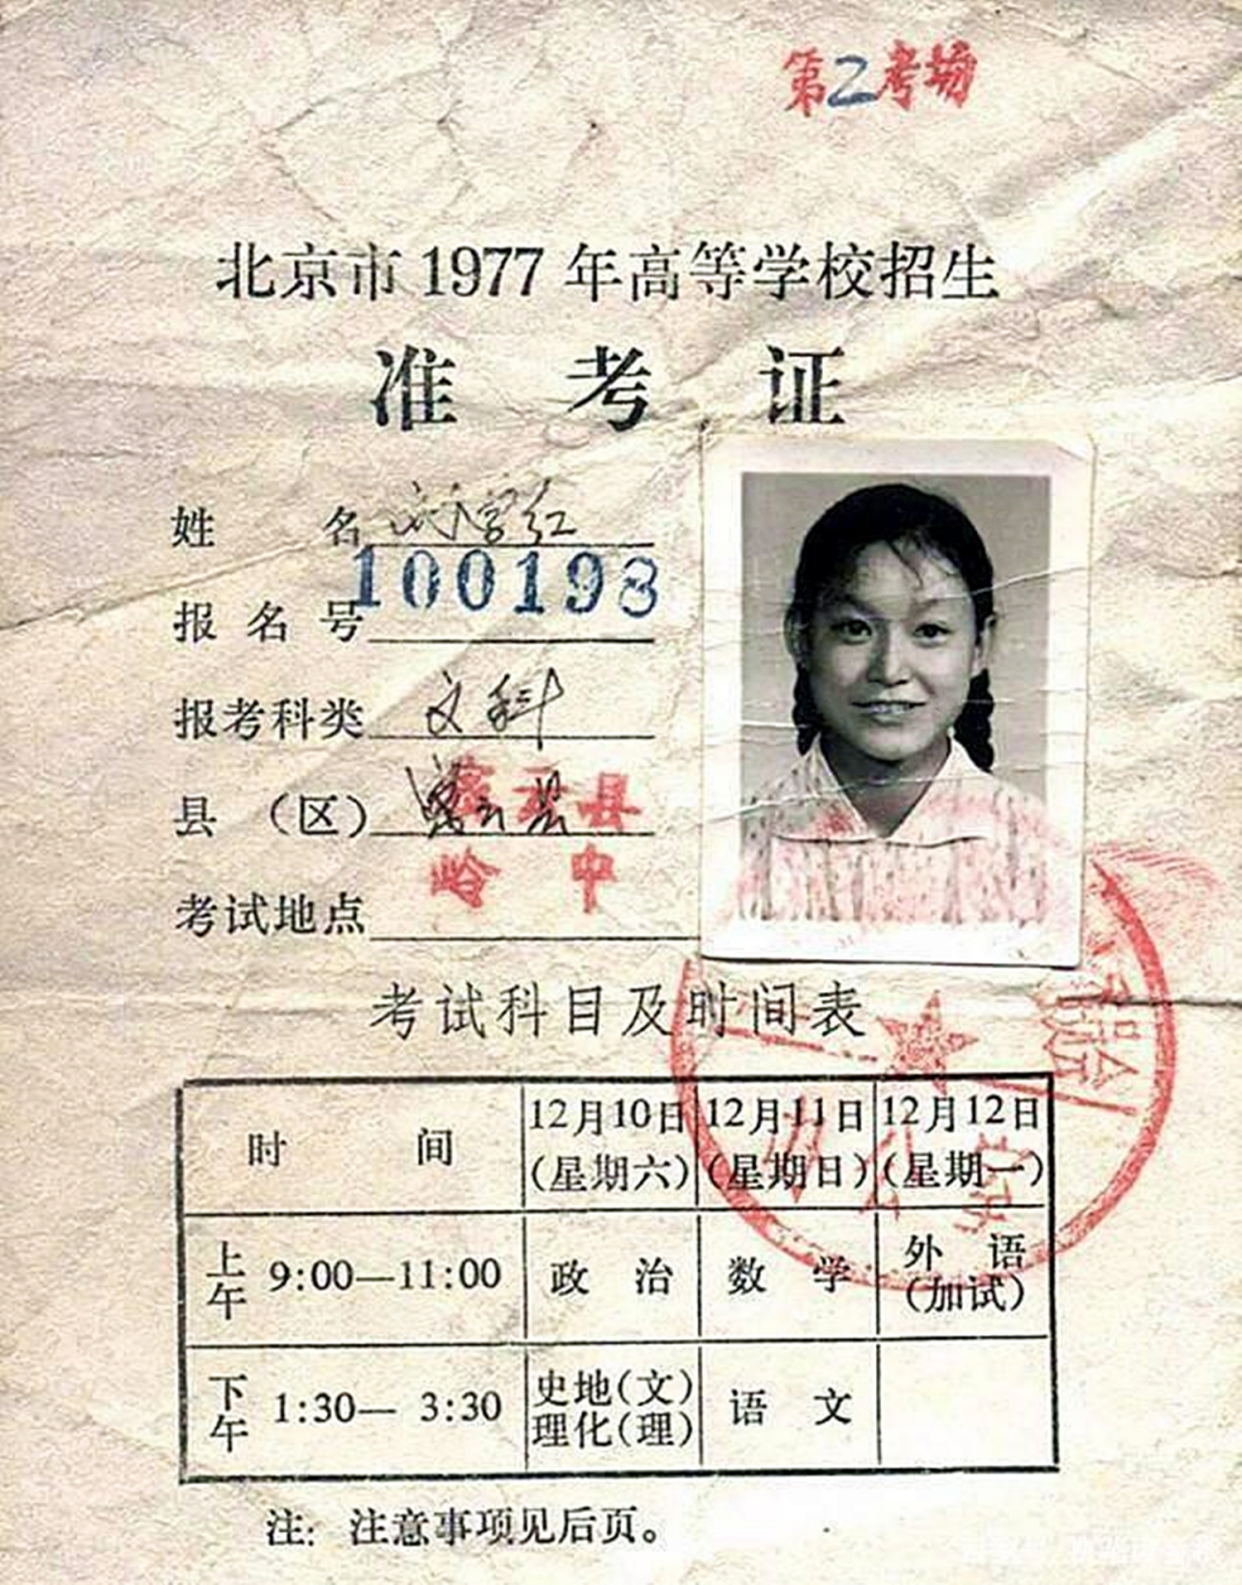 第2考场
北京市1977年高等学校招生
准考证
姓 名 刘学红
报名号 100198
报考科类 文科
县（区） 密云县 密云县
岭 中
考试地点
考试科目及时间表
时 间 12月10日（星期六） 12月11日（星期日） 12月12日（星期一）
上午 9:00—11:00 政 治 数 学 外 语（加试）
下午 1:30— 3:30 史地（文）理化（理） 语 文
注：注意事项见后页。